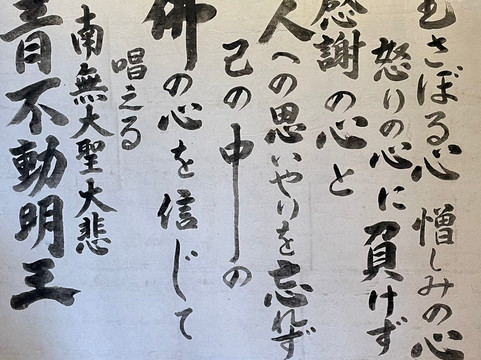 むさぼる心 憎しみの心
怒りの心に負けず
感謝の心と
人への思いやりを忘れず
己の中の
佛の心を信じて
唱える
南無大聖大悲
青不動明王